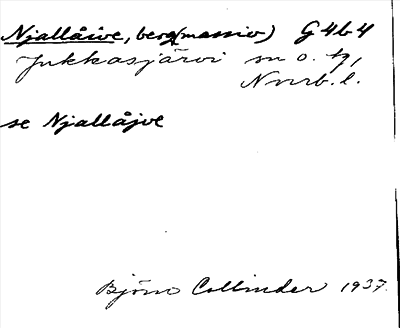 Njallåive, berg(massiv) G4b4
Jukkasjärvi sn o. tg,
Nrrb. l.
se Njallåjve
Björn Collinder 1937.